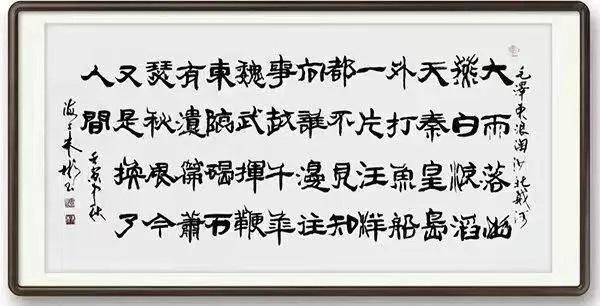 毛澤東浪淘沙北戴河
大雨落幽
燕白浪滔
天秦皇島
外打魚船
一片汪洋
都不見知
向誰邊往
事越千年
魏武揮鞭
東臨碣石
有遺篇蕭
瑟秋風今
又是換了
人間